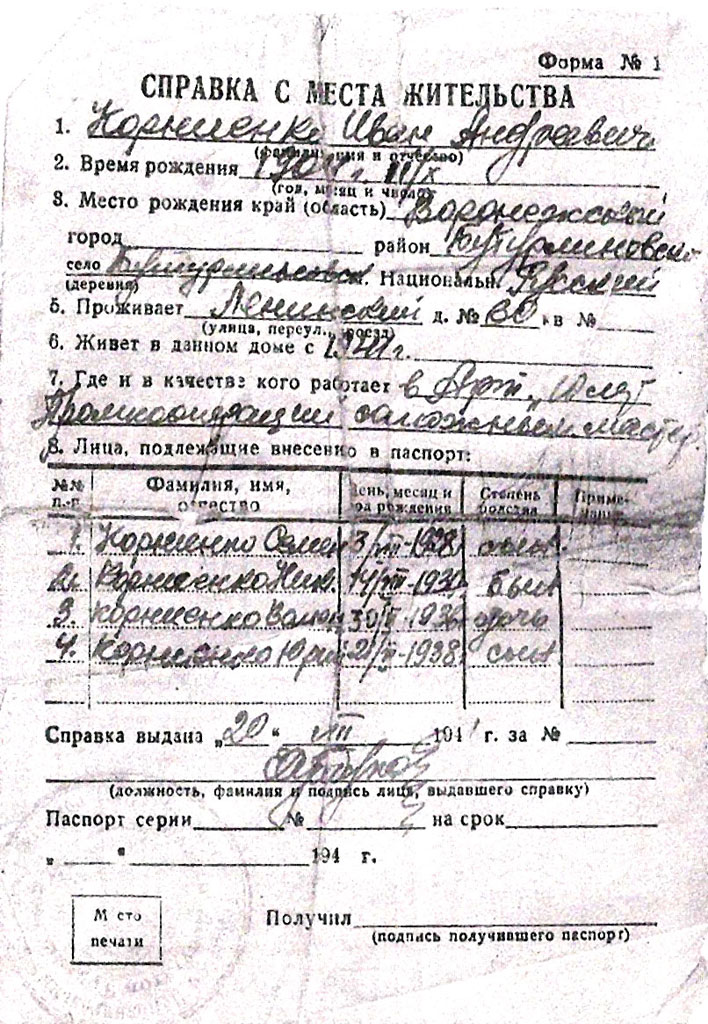 Форма № 1
СПРАВКА С МЕСТА ЖИТЕЛЬСТВА
1. Корниенко Иван Андреевич
(фамилия, имя и отчество)
2. Время рождения
(год, месяц и число)
3. Место рождения край (область) Воронежский
город район Бутурлиновск
село
(деревня) Национальн. Русский
5. Проживает Ленинский д. № 60 кв №
(улица, переул., проезд)
6. Живет в данном доме с г.
7. Где и в качестве кого работает в Арт.
Промкооперации сапожный мастер.
8. Лица, подлежащие внесению в паспорт:
№№ п.-п. Фамилия, имя, отчество День, месяц и год рождения Степень родства Приме-чание
1. Корниенко Семен 3/VII-1928 сын
2. Корниенко 14/VII-193 сын
3. Корниенко 30/ -1936 дочь
4. Корниенко Юрий 2/ -1938 сын
Справка выдана „20“ III 1941 г. за №
(должность, фамилия и подпись лица, выдавшего справку)
Паспорт серии № на срок
„ “ 194 г.
Место печати
Получил
(подпись получившего паспорт)